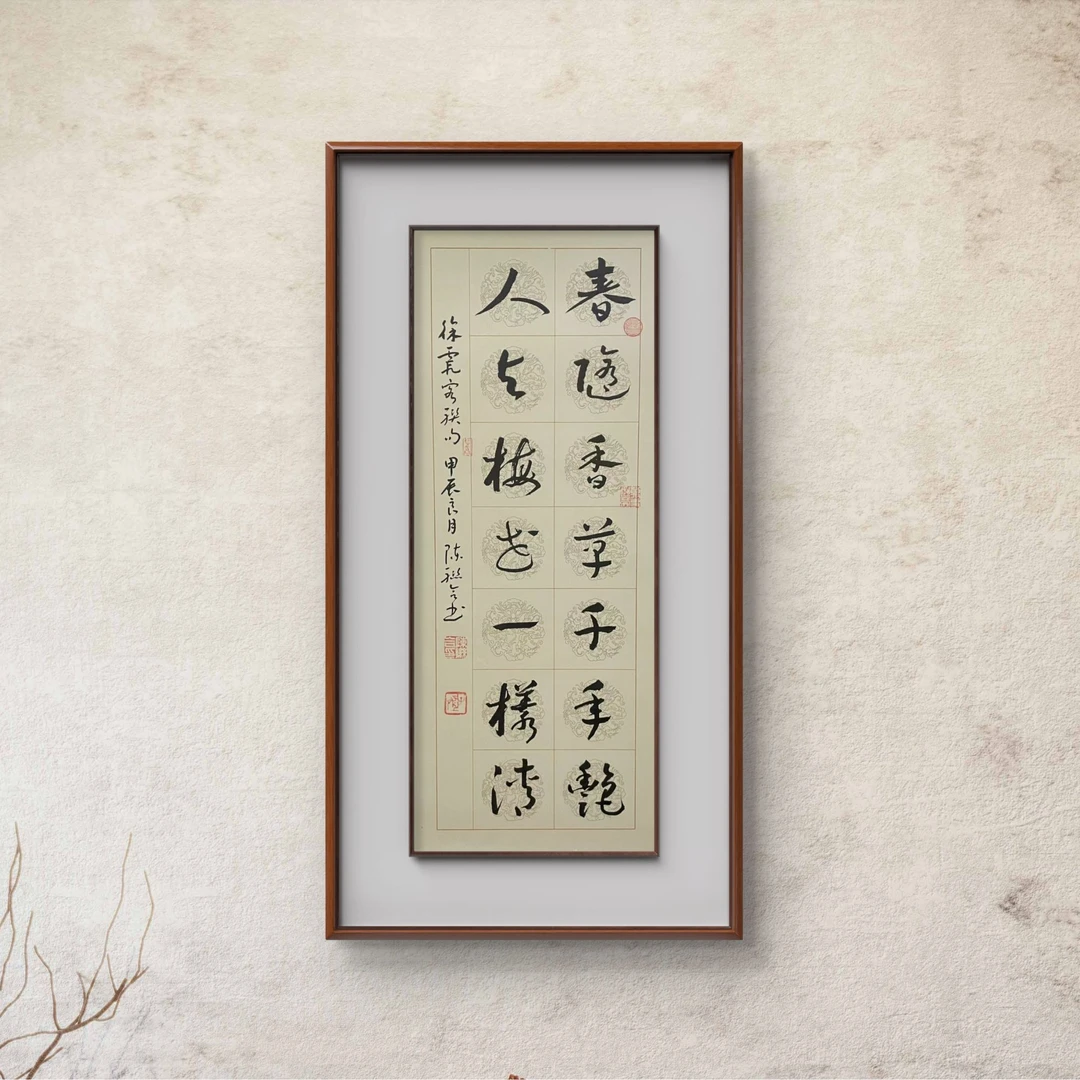 春随香草千年艳
人与梅花一样清
徐霞客联句 甲辰良月 陈联合书